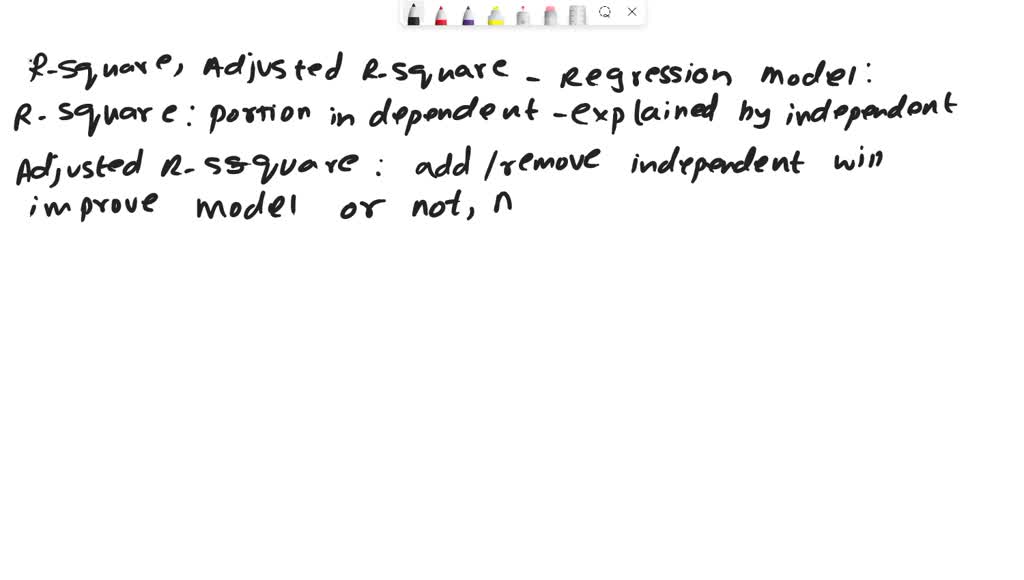 R-square, Adjusted R-square - Regression model:
R-square: portion in dependent - explained by independent
Adjusted R-ssquare: add/remove independent will
improve model or not, n